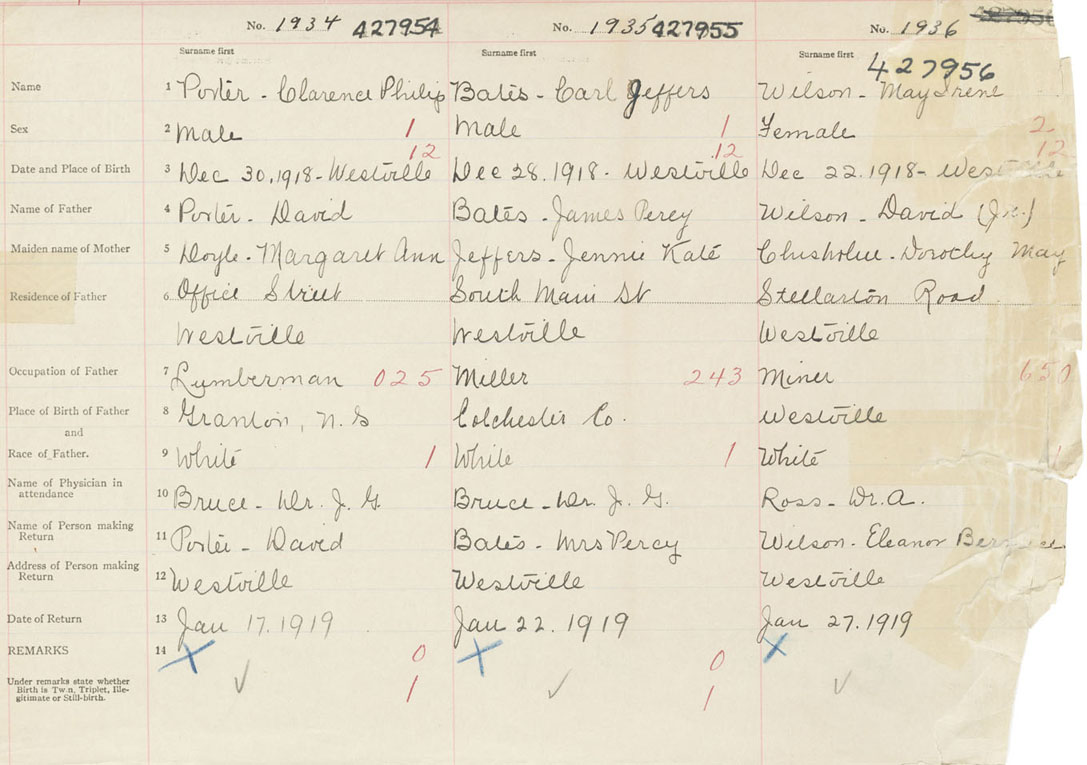 No. 1934 427954 No. 1935 427955 No. 1936
Surname first Surname first Surname first 427956
Name 1 Porter - Clarence Philip Bates - Carl Jeffers Wilson - May Irene
Sex 2 Male 1 Male 1 Female 2
12 12 12
Date and Place of Birth 3 Dec 30, 1918 - Westville Dec 28. 1918 - Westville Dec 22. 1918 - Westville
Name of Father 4 Porter - David Bates - James Percy Wilson - David (Jr.)
Maiden name of Mother 5 Doyle - Margaret Ann Jeffers - Jennie Kate Chisholm - Dorothy May
Residence of Father 6 Office Street South Main St Stellarton Road
Westville Westville Westville
Occupation of Father 7 Lumberman 025 Miller 243 Miner 650
Place of Birth of Father 8 Granton, N.S Colchester Co. Westville
and
Race of Father. 9 White 1 White 1 White 1
Name of Physician in
attendance 10 Bruce - Dr. J. G. Bruce - Dr. J. G. Ross - Dr. A.
Name of Person making
Return 11 Porter - David Bates - Mrs Percy Wilson - Eleanor Bernice
Address of Person making
Return 12 Westville Westville Westville
Date of Return 13 Jan 17. 1919 Jan 22. 1919 Jan 27. 1919
REMARKS 14 X 0 X 0 X
Under remarks state whether
Birth is Twin, Triplet, Ille-
gitimate or Still-birth. ✓ 1 ✓ 1 ✓